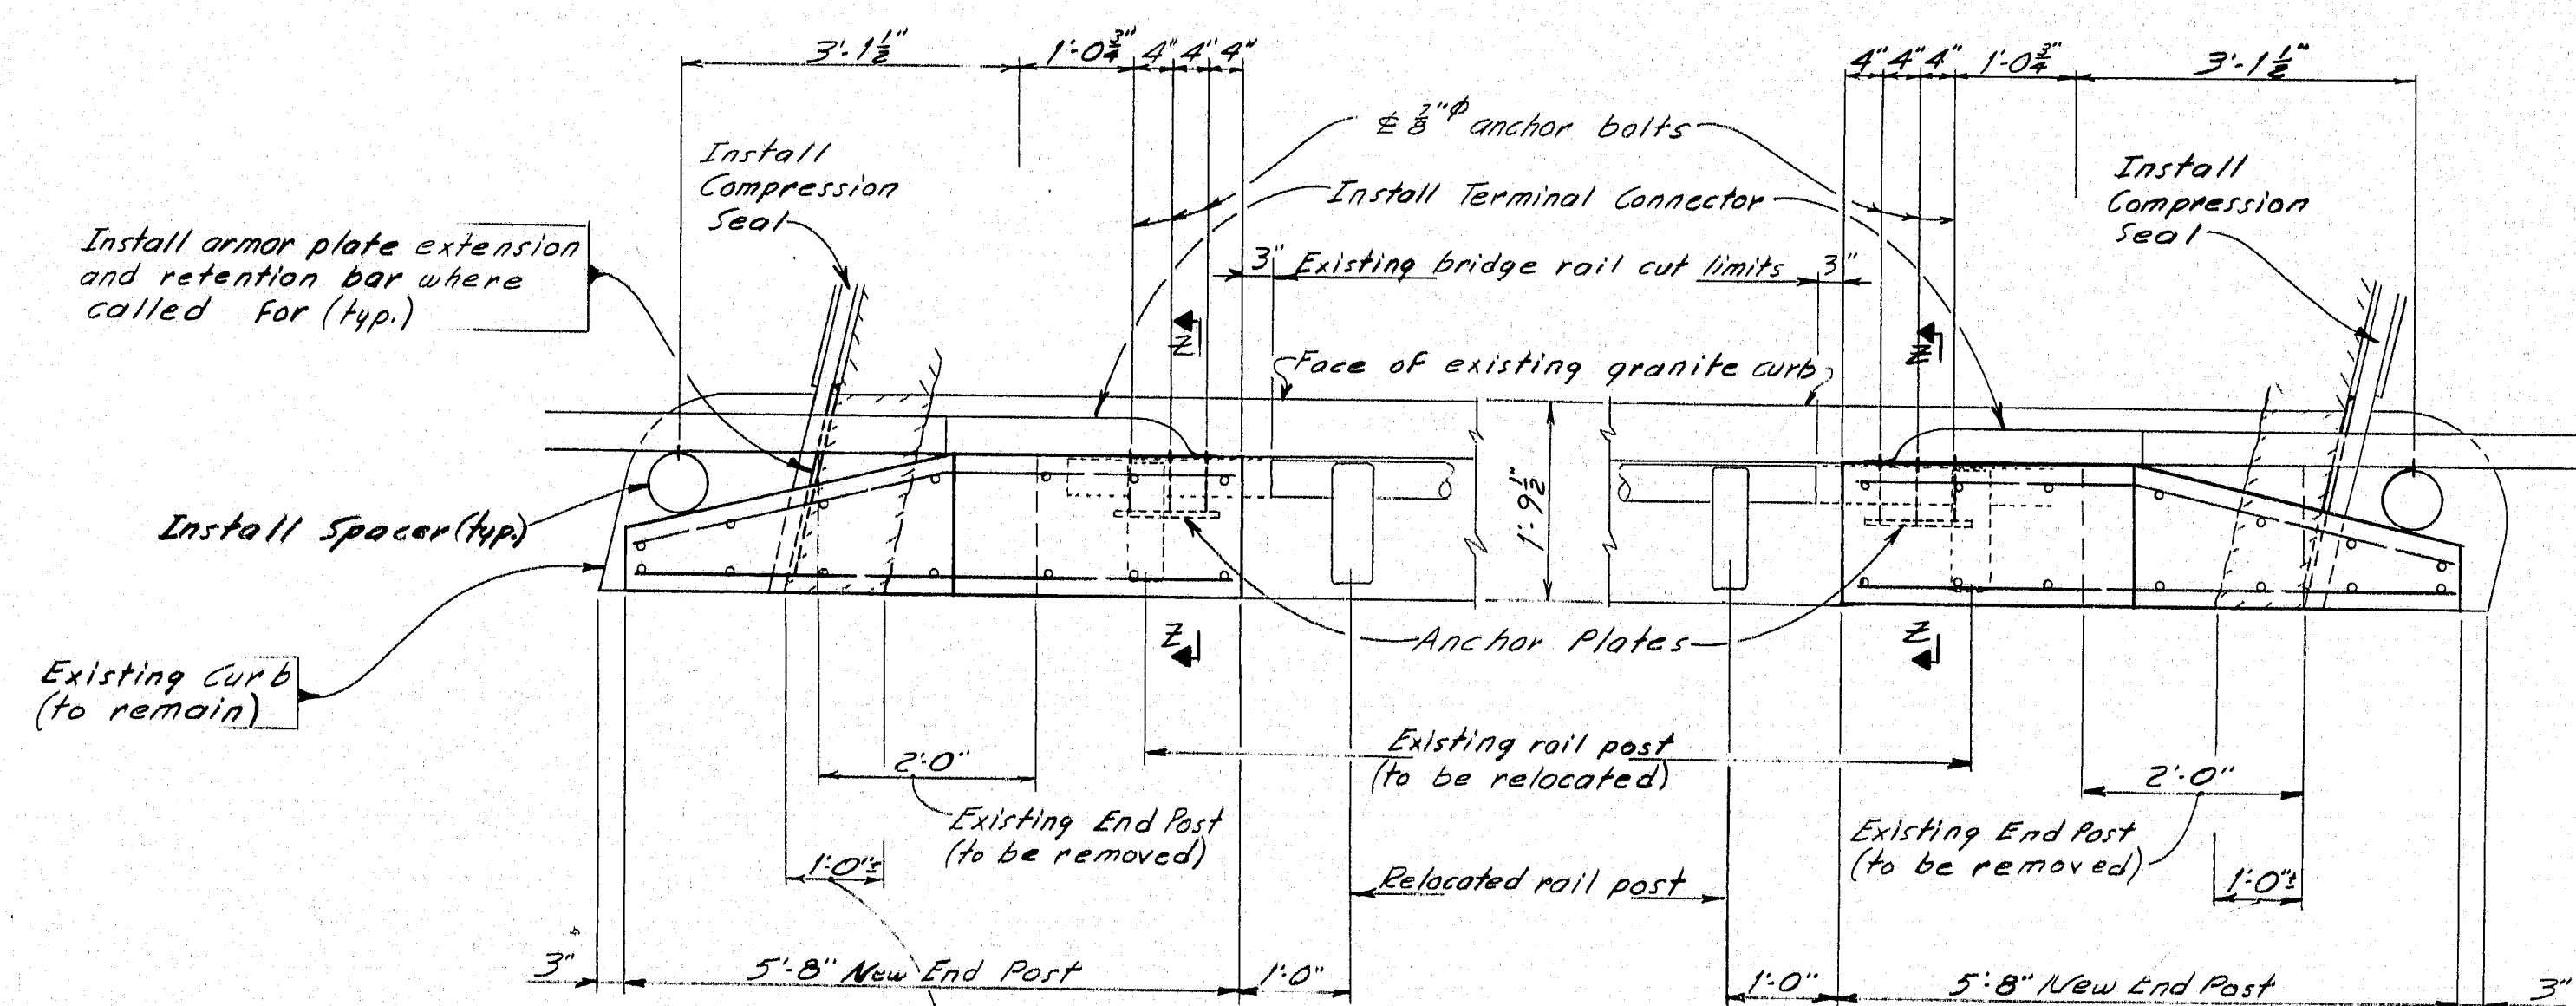 3'-1½" 1'-0¾" 4" 4" 4"
4" 4" 4" 1'-0¾" 3'-1½"
℄ ⅞"ϕ anchor bolts
Install
Compression
Seal
Install Terminal Connector
Install
Compression
Seal
Install armor plate extension
and retention bar where
called for (typ.)
3" Existing bridge rail cut limits 3"
Z Z
Face of existing granite curb
Install Spacer (typ.)
1'-9½"
Z Z
Anchor Plates
Existing Curb
(to remain)
Existing rail post
(to be relocated)
2'-0"
2'-0"
Existing End Post
(to be removed)
Existing End Post
(to be removed)
1'-0"±
Relocated rail post
1'-0"±
3" 5'-8" New End Post 1'-0"
1'-0" 5'-8" New End Post 3"